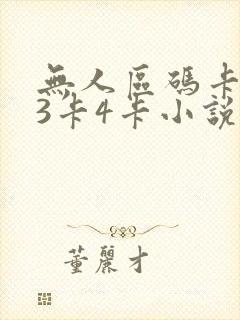 無人區碼卡
3卡4卡小說
董麗才